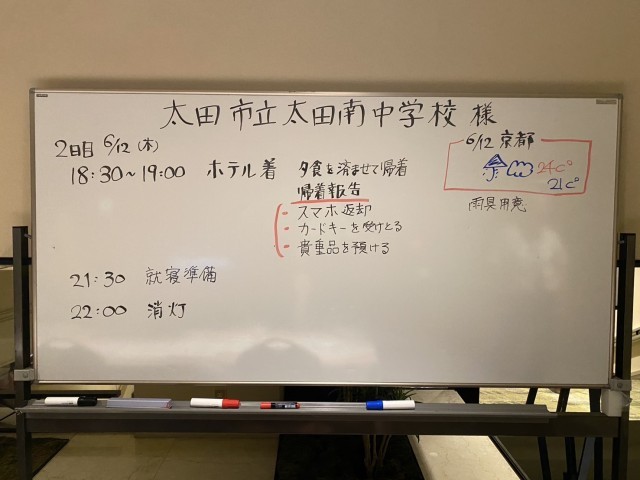 太田市立太田南中学校 様
2日目 6/12 (木)
18:30~19:00 ホテル着 夕食を済ませて帰着
帰着報告
- スマホ返却
- カードキーを受けとる
- 貴重品を預ける
21:30 就寝準備
22:00 消灯
6/12 京都
24c°
21c°
雨具用意